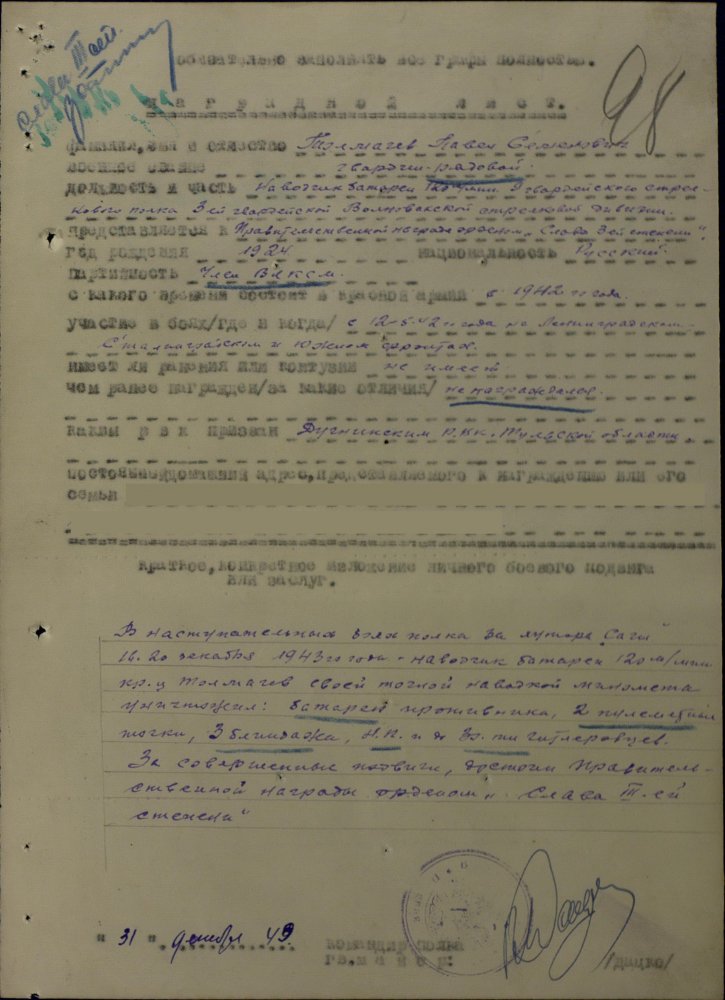 Слава III ей
обязательно заполнять все графы полностью.
98
НАГРАДНОЙ ЛИСТ.
фамилия, имя и отчество Толмачев Павел Семенович
военное звание гвардии-рядовой.
должность и часть Наводчик батареи 120 м/мин. 9 гвардейского стрел-
кового полка 3ей гвардейской Волновахской стрелковой дивизии.
представляется к Правительственной награде орденом „Слава 3ей степени".
год рождения 1924 национальность Русский.
партийность Член ВЛКСМ.
с какого времени состоит в красной армии с 1942 го года.
участие в боях/где и когда/ с 12-5-42 го года на Ленинградском-
Сталинградском и Южном фронтах.
имеет ли ранения или контузии не имеет
чем ранее награжден/за какие отличия/ не награждался
каким р в к призван Дугнинским Р.В.К. Тульской области
постоянный домашний адрес, представляемого к награждению или его
семьи
краткое, конкретное изложение личного боевого подвига
или заслуг.
В наступательных боях полка за хутора „Саги"
18.20 декабря 1943 го года - наводчик батареи 120 м/мин
кр-ц Толмачев своей точной наводкой миномета
уничтожил: батарею противника, 2 пулеметных
точки, 3 блиндажа, Н.П. и до гитлеровцев.
За совершенные подвиги, достоин Правитель-
ственной награды орденом „Слава III-ей
степени"
" 31 " декабря 43.
командир полка
гв. майор:
/дацко/